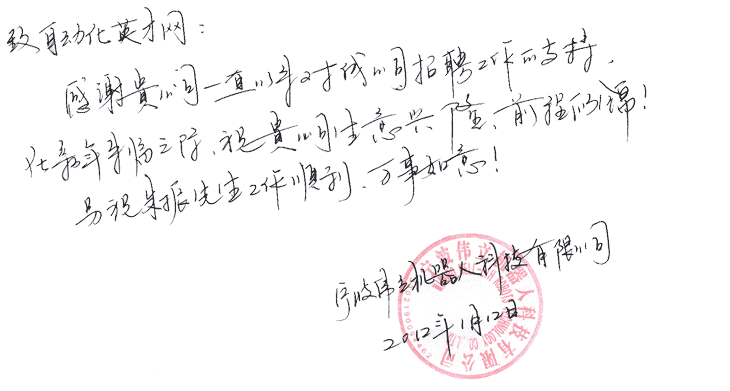 致自动化英才网：
感谢贵公司一直以来对我公司招聘工作的支持，
在新年来临之际，祝贵公司生意兴隆、前程似锦！
另祝朱振先生工作顺利、万事如意！
宁波伟立机器人科技有限公司
2012年1月12日